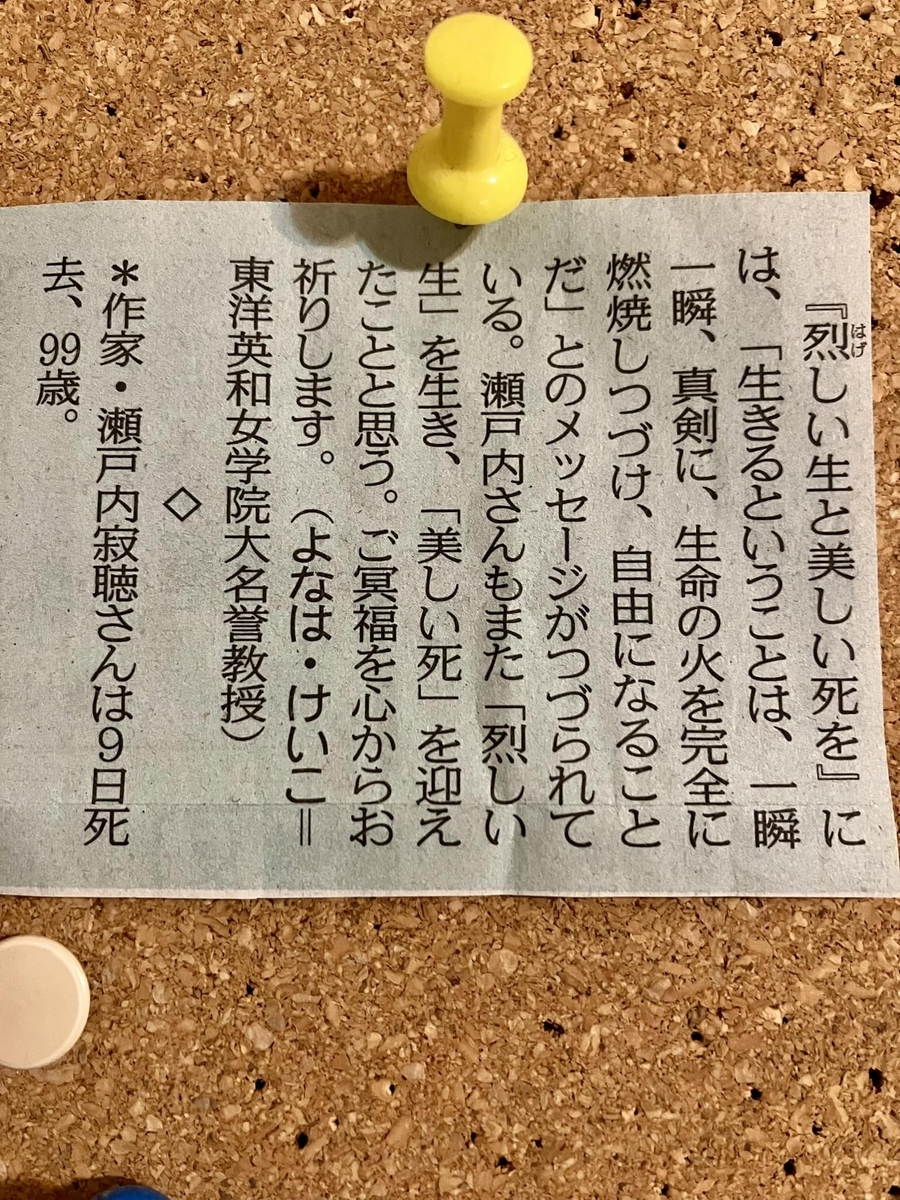 『烈しい生と美しい死を』に
はげ
は、「生きるということは、一瞬
一瞬、真剣に、生命の火を完全に
燃焼しつづけ、自由になること
だ」とのメッセージがつづられて
いる。瀬戸内さんもまた「烈しい
生」を生き、「美しい死」を迎え
たことと思う。ご冥福を心からお
祈りします。（よなは・けいこ＝
東洋英和女学院大名誉教授）
◇
＊作家・瀬戸内寂聴さんは９日死
去、99歳。